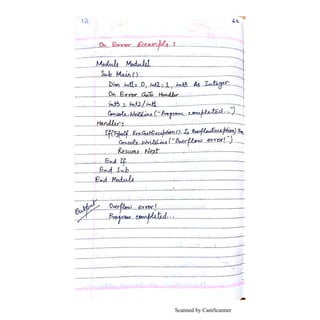 On Error Example :
Module Module1
Sub Main()
Dim int1 = 0, int2 = 1, int3 As Integer
On Error GoTo Handler
int3 = int2/int1
Console.WriteLine("Program completed...")
Handler:
If(TypeOf Err.GetException() Is OverflowException) Then
Console.WriteLine("Overflow error!")
Resume Next
End If
End Sub
End Module
Output Overflow error!
Program completed...
Scanned by CamScanner